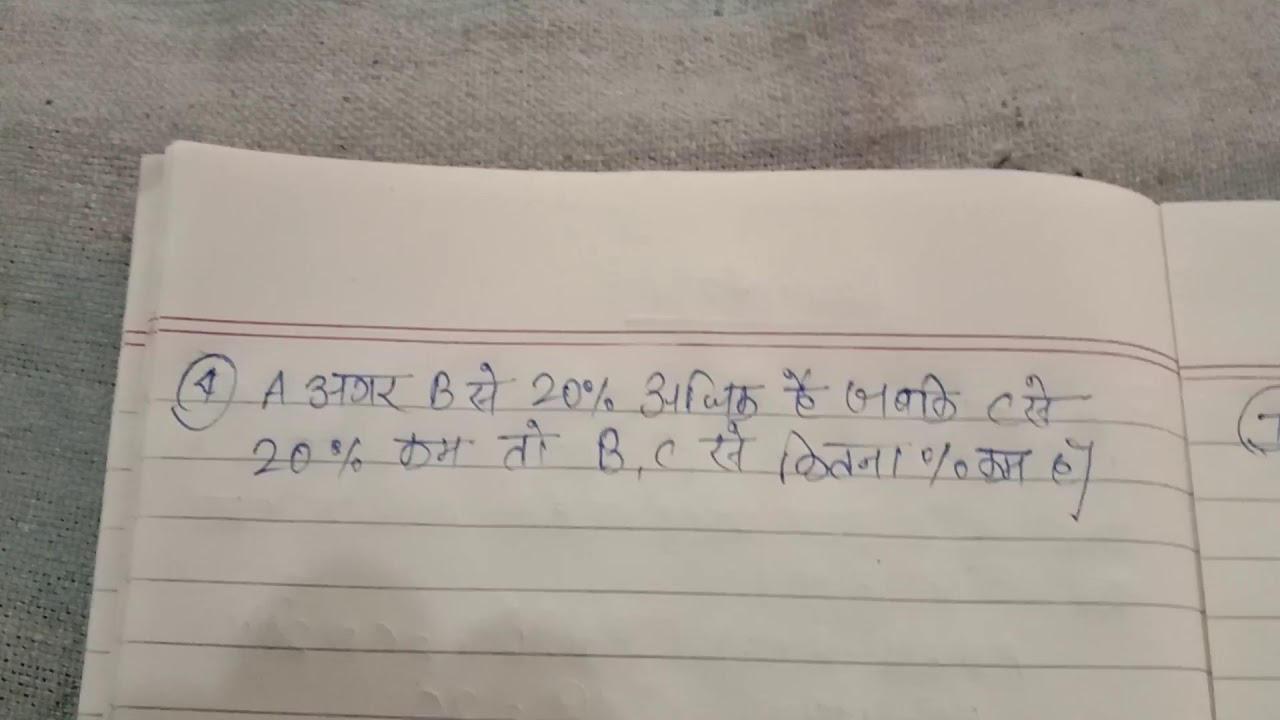 ④ A अगर B से 20% अधिक है जबकि C से
20% कम तो B, C से कितना % कम है